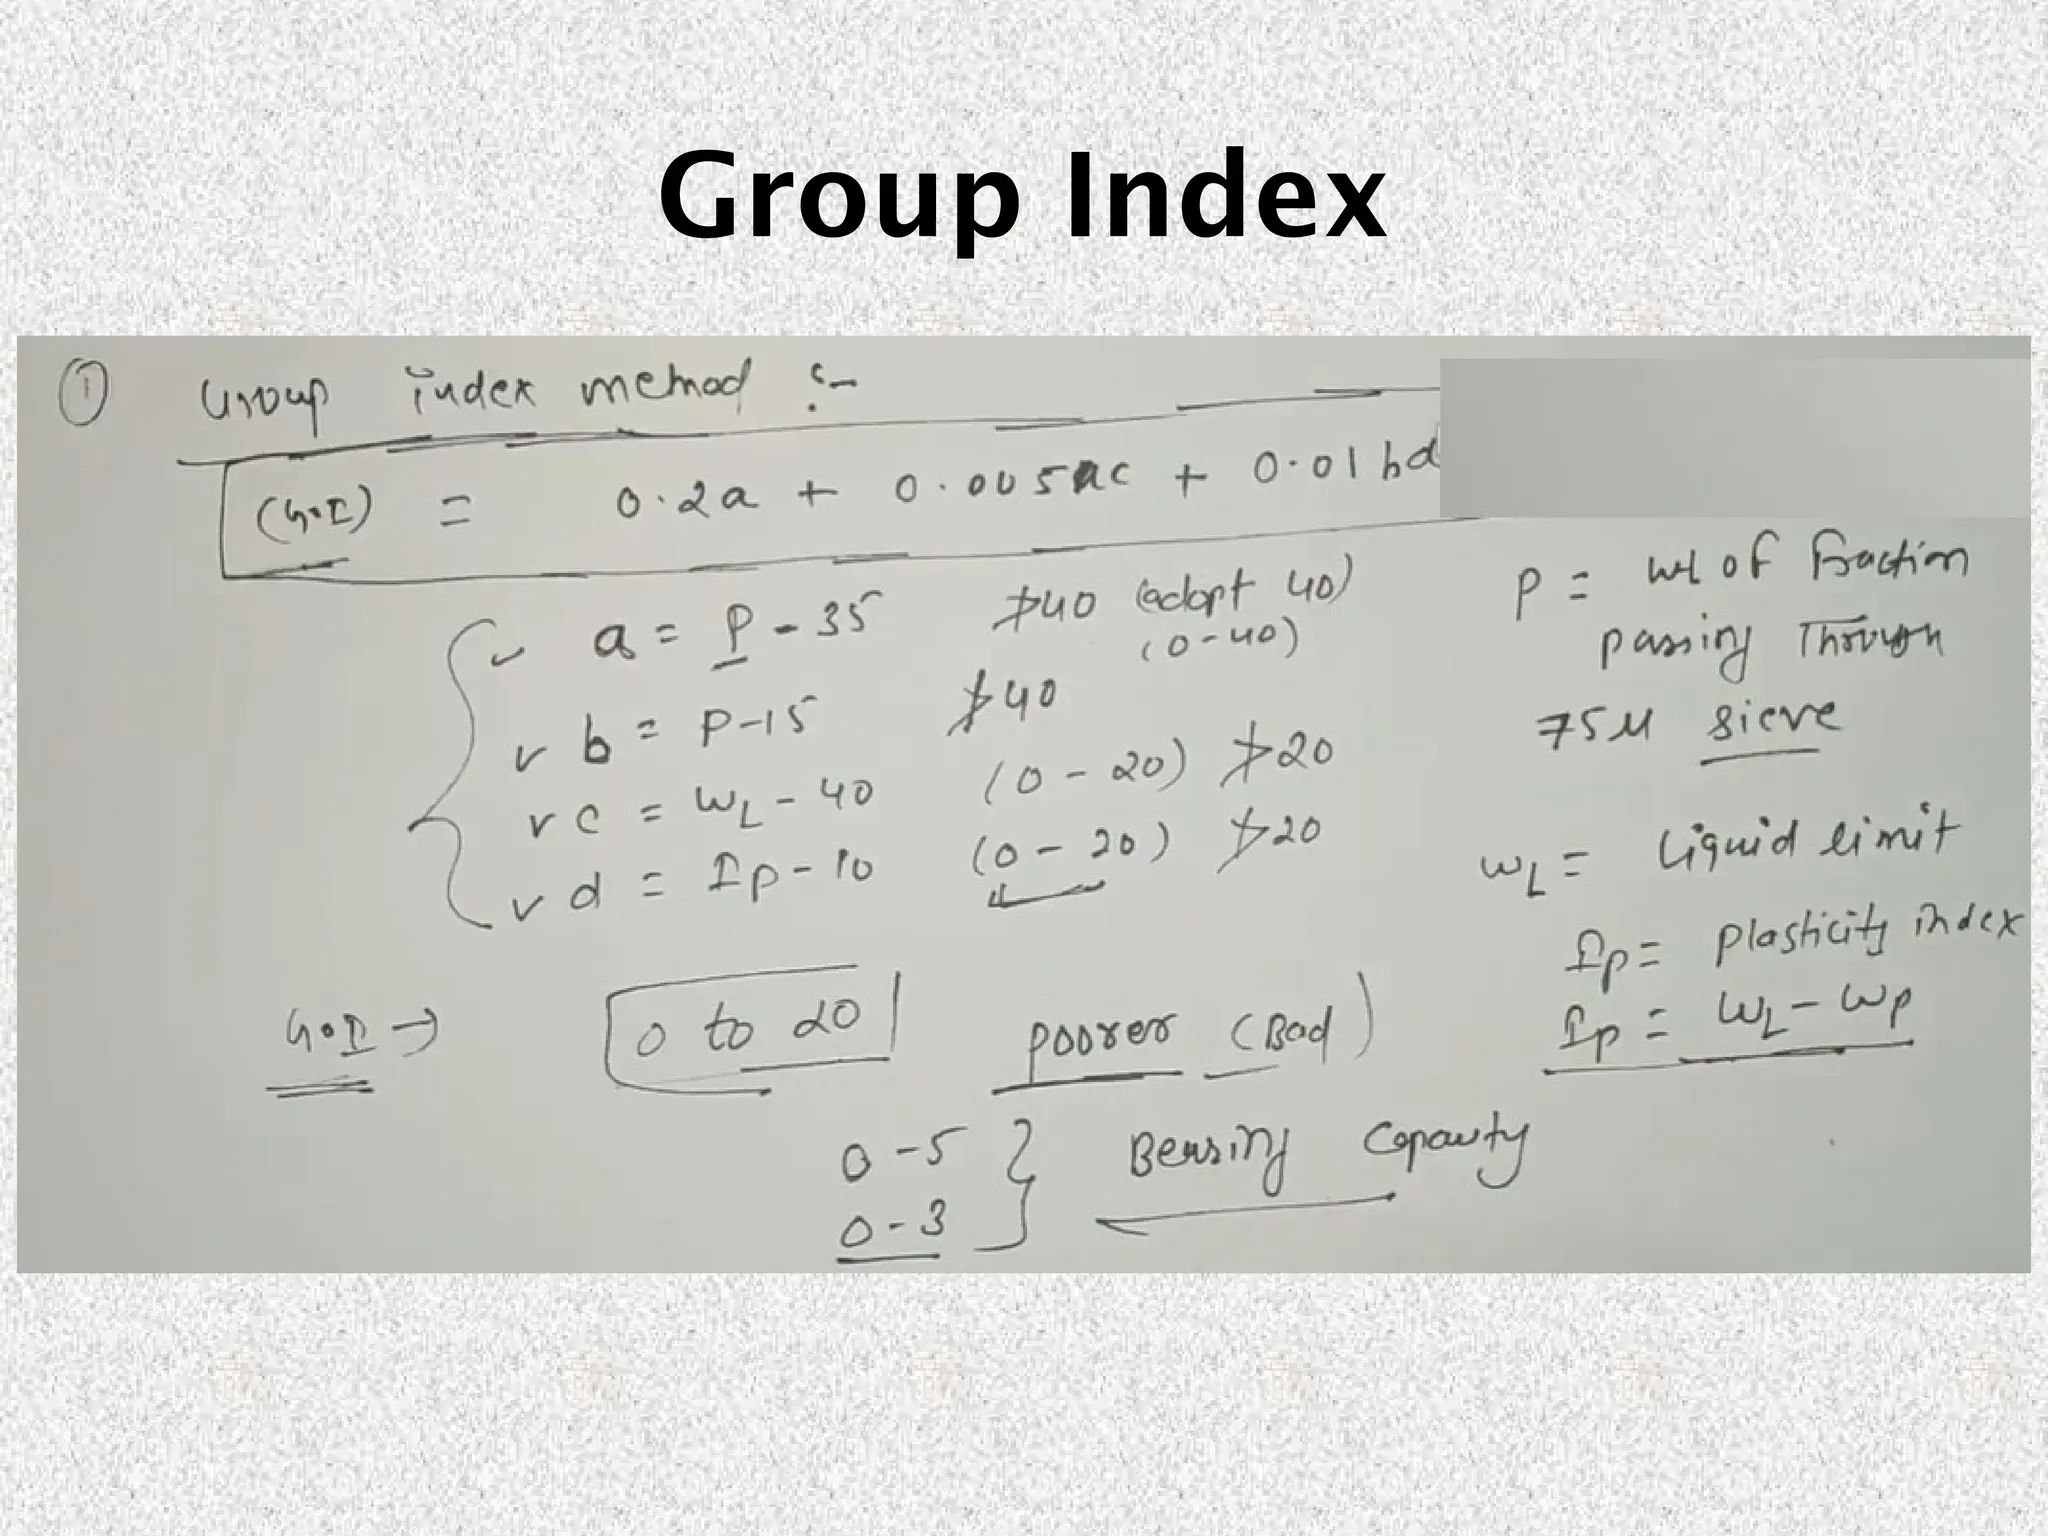 Group Index
① Group index method :-
(G.I) = 0.2a + 0.005ac + 0.01bd
a = P - 35 ≯40 (adopt 40)
(0-40)
b = P-15 ≯40
c = WL - 40 (0 - 20) ≯20
d = Ip - 10 (0 - 20) ≯20
P = wt of fraction
passing Through
75μ sieve
WL = Liquid limit
Ip = plasticity index
Ip = WL - Wp
G.I → 0 to 20 poorer (Bad)
0 - 5
0 - 3 } Bearing Capacity